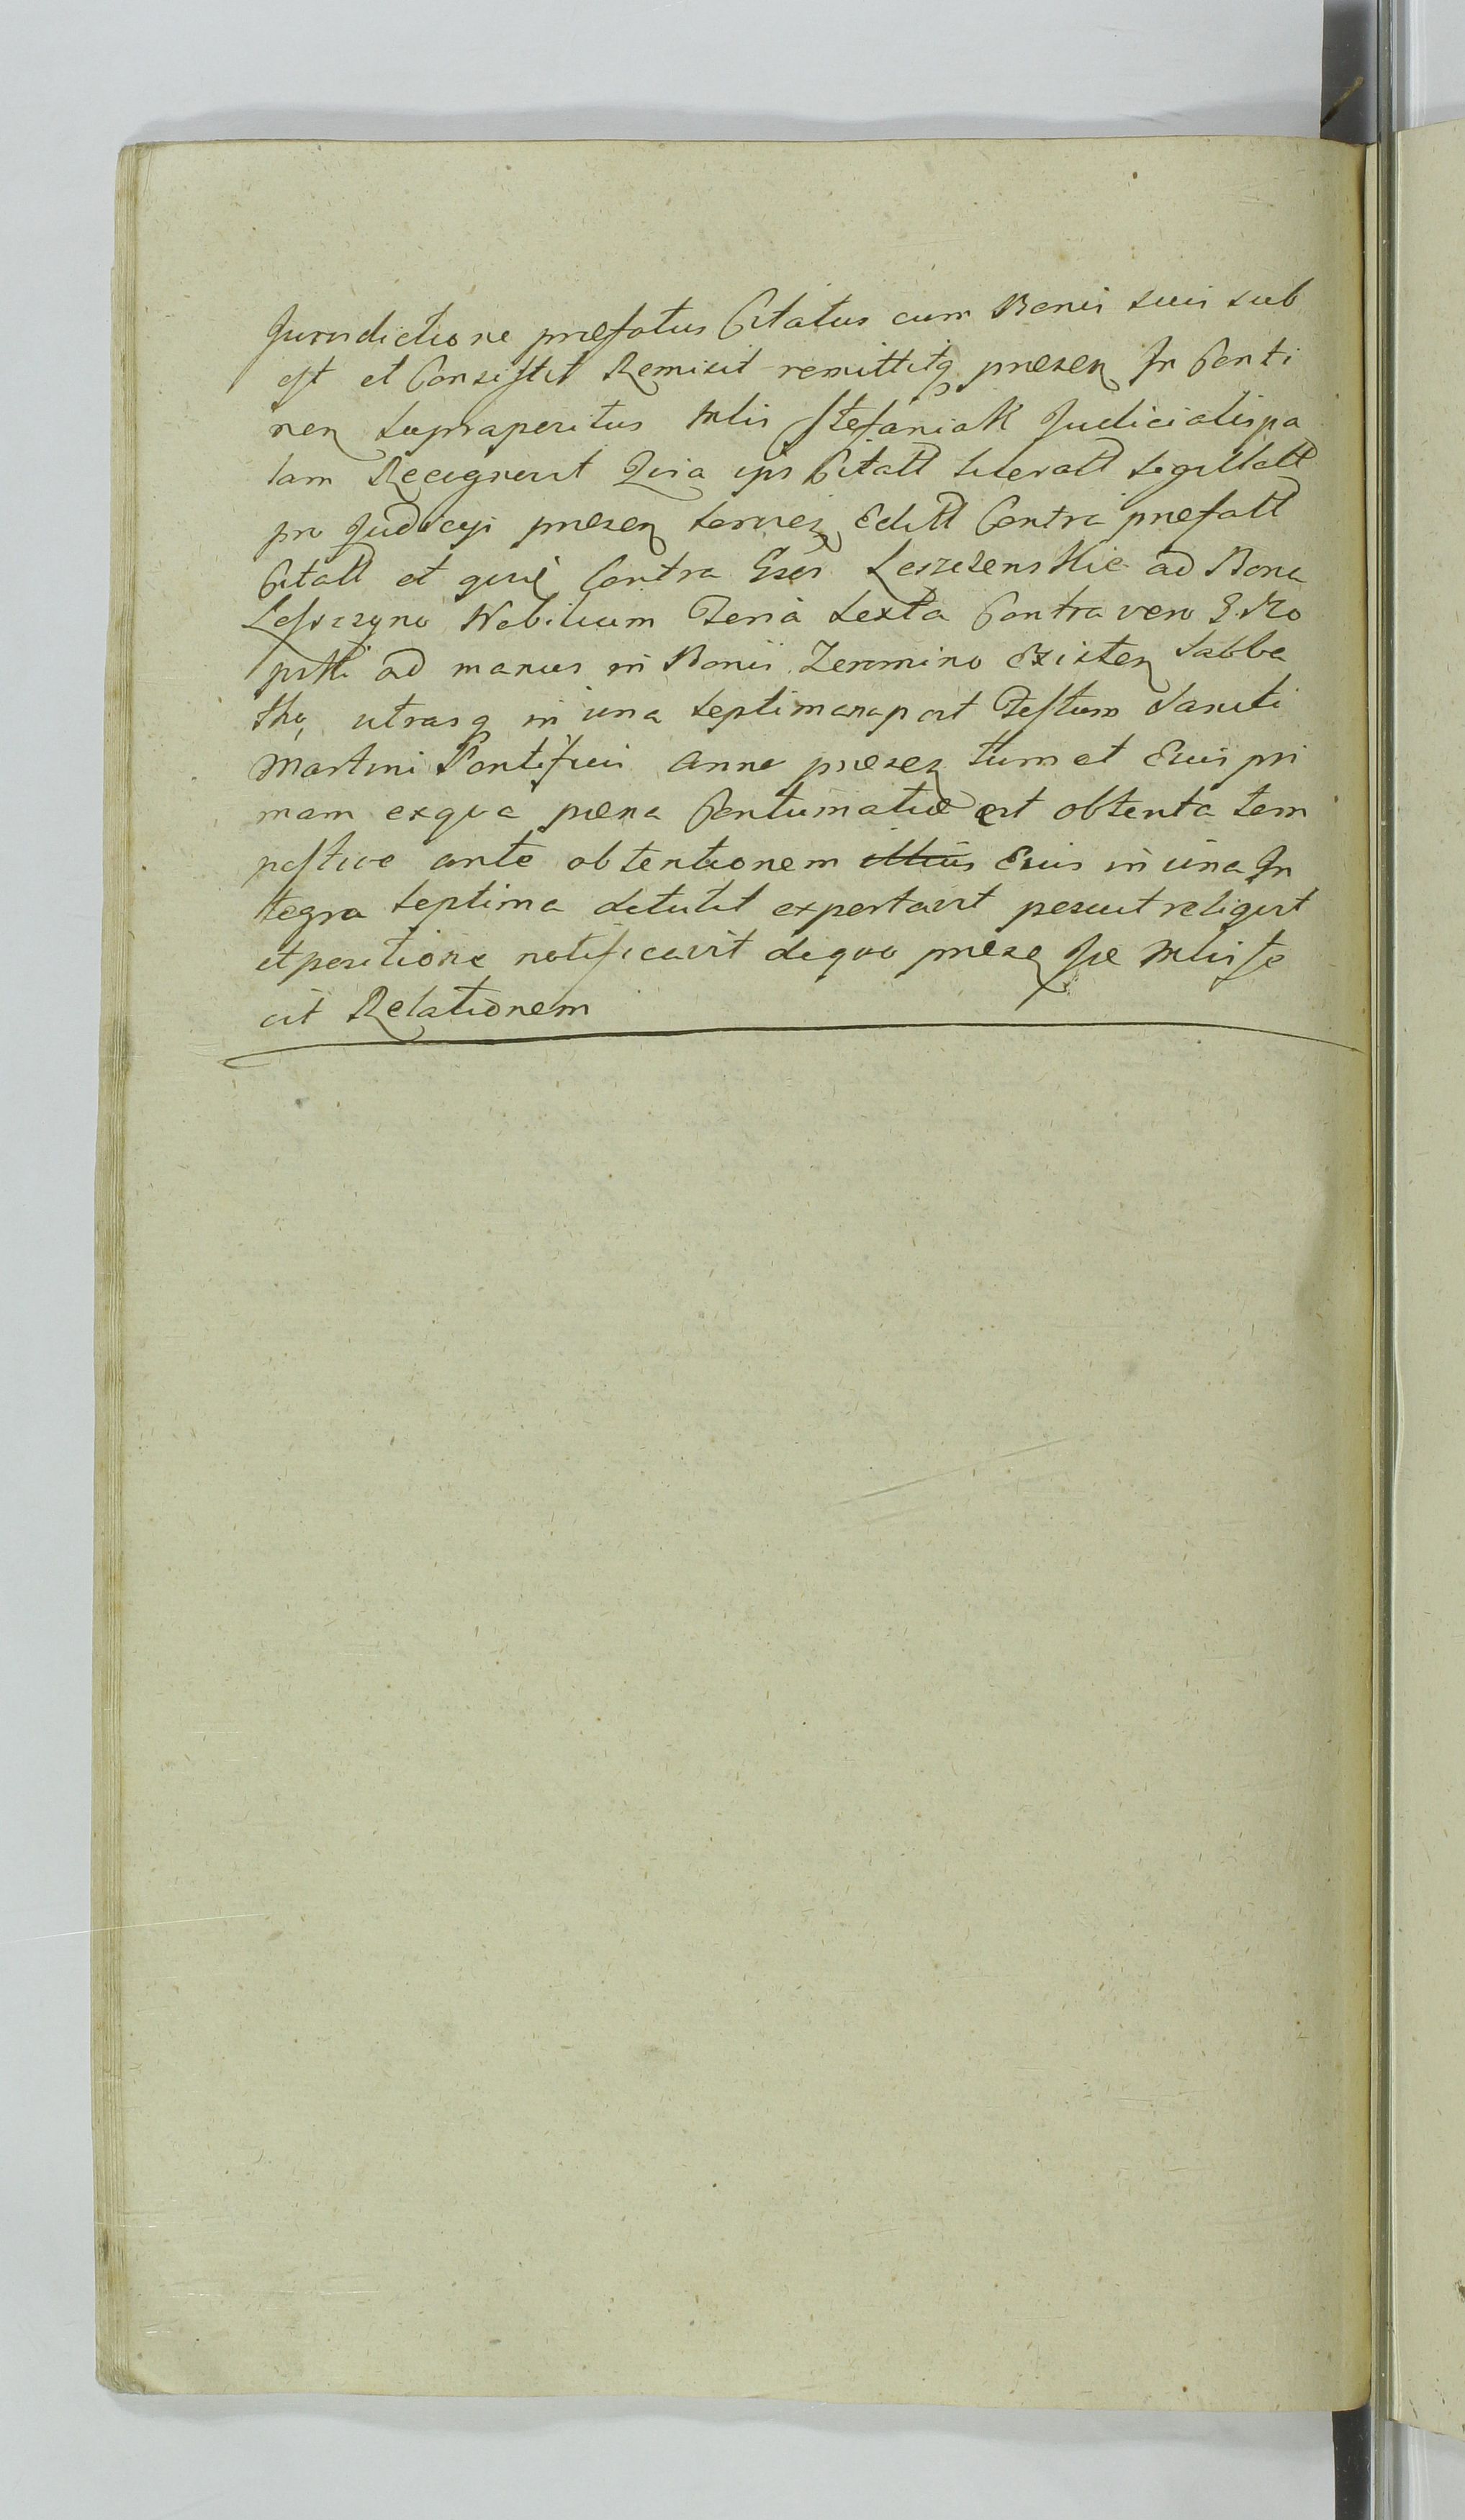 Jurisdictione præfatus Citatus cum Bonis suis sub
est et Consistit Remisit remittitq presen In Conti
nen supraperitus Mlis Stefaniak Judicialis pa
lam Recognovit Quia ips Citatt literatt sigillatt
pro Judicys presen servien Editt Contra præfatt
Citatt et quid Contra Leszczenskie ad Bona
Leszczyno Nobilium Feria sexta Contra vero G. Ko
pski ad manus in Bonis Zeromino Existen Sabba
tho, utrasq in una septimana post Festum Sancti
Martini Pontificis Anno presen tum et Eius pri
mam exqua pæna Contumatiæ est obtenta tem
pestive ante obtentionem illius Eius in una In
tegra septima detulit exportavit posuit reliquit
et positione notificavit dequo presen Je Mlis fe
cit Relationem